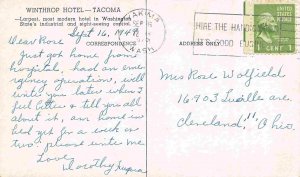 WINTHROP HOTEL—TACOMA
—Largest, most modern hotel in Washington
State's industrial and sight-seeing center.
Sept 16, 1949
Dear Rose
CORRESPONDENCE
ADDRESS ONLY
Just got home from
hospital, had an em-
ergency operation, will
write you later when I
feel better & tell you all
about it, am home in
bed yet for a week or
two, please write me
Love,
Dorothy
YAKIMA
WASH.
HIRE THE HANDI
GOOD BUS
1 CENT 1
Miss Rose Wolfield
16703 Lucille ave.
Cleveland, 11, Ohio.